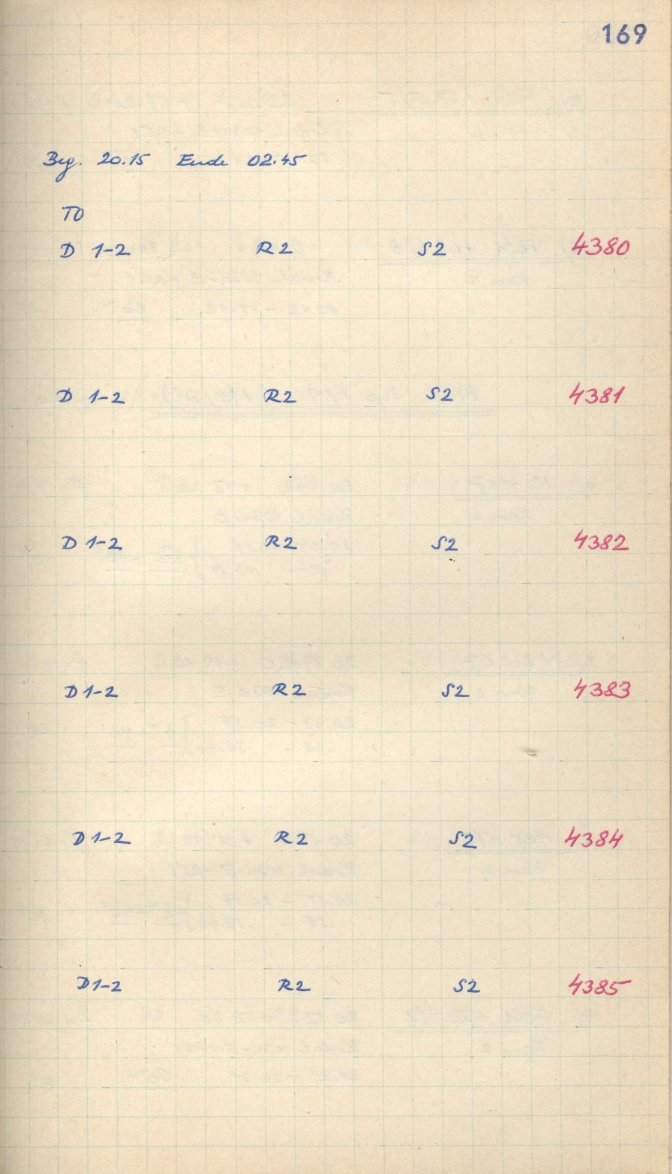 169
Beg. 20.15 Ende 02.45
TO
D 1-2 R2 S2 4380
D 1-2 R2 S2 4381
D 1-2 R2 S2 4382
D 1-2 R2 S2 4383
D 1-2 R2 S2 4384
D 1-2 R2 S2 4385